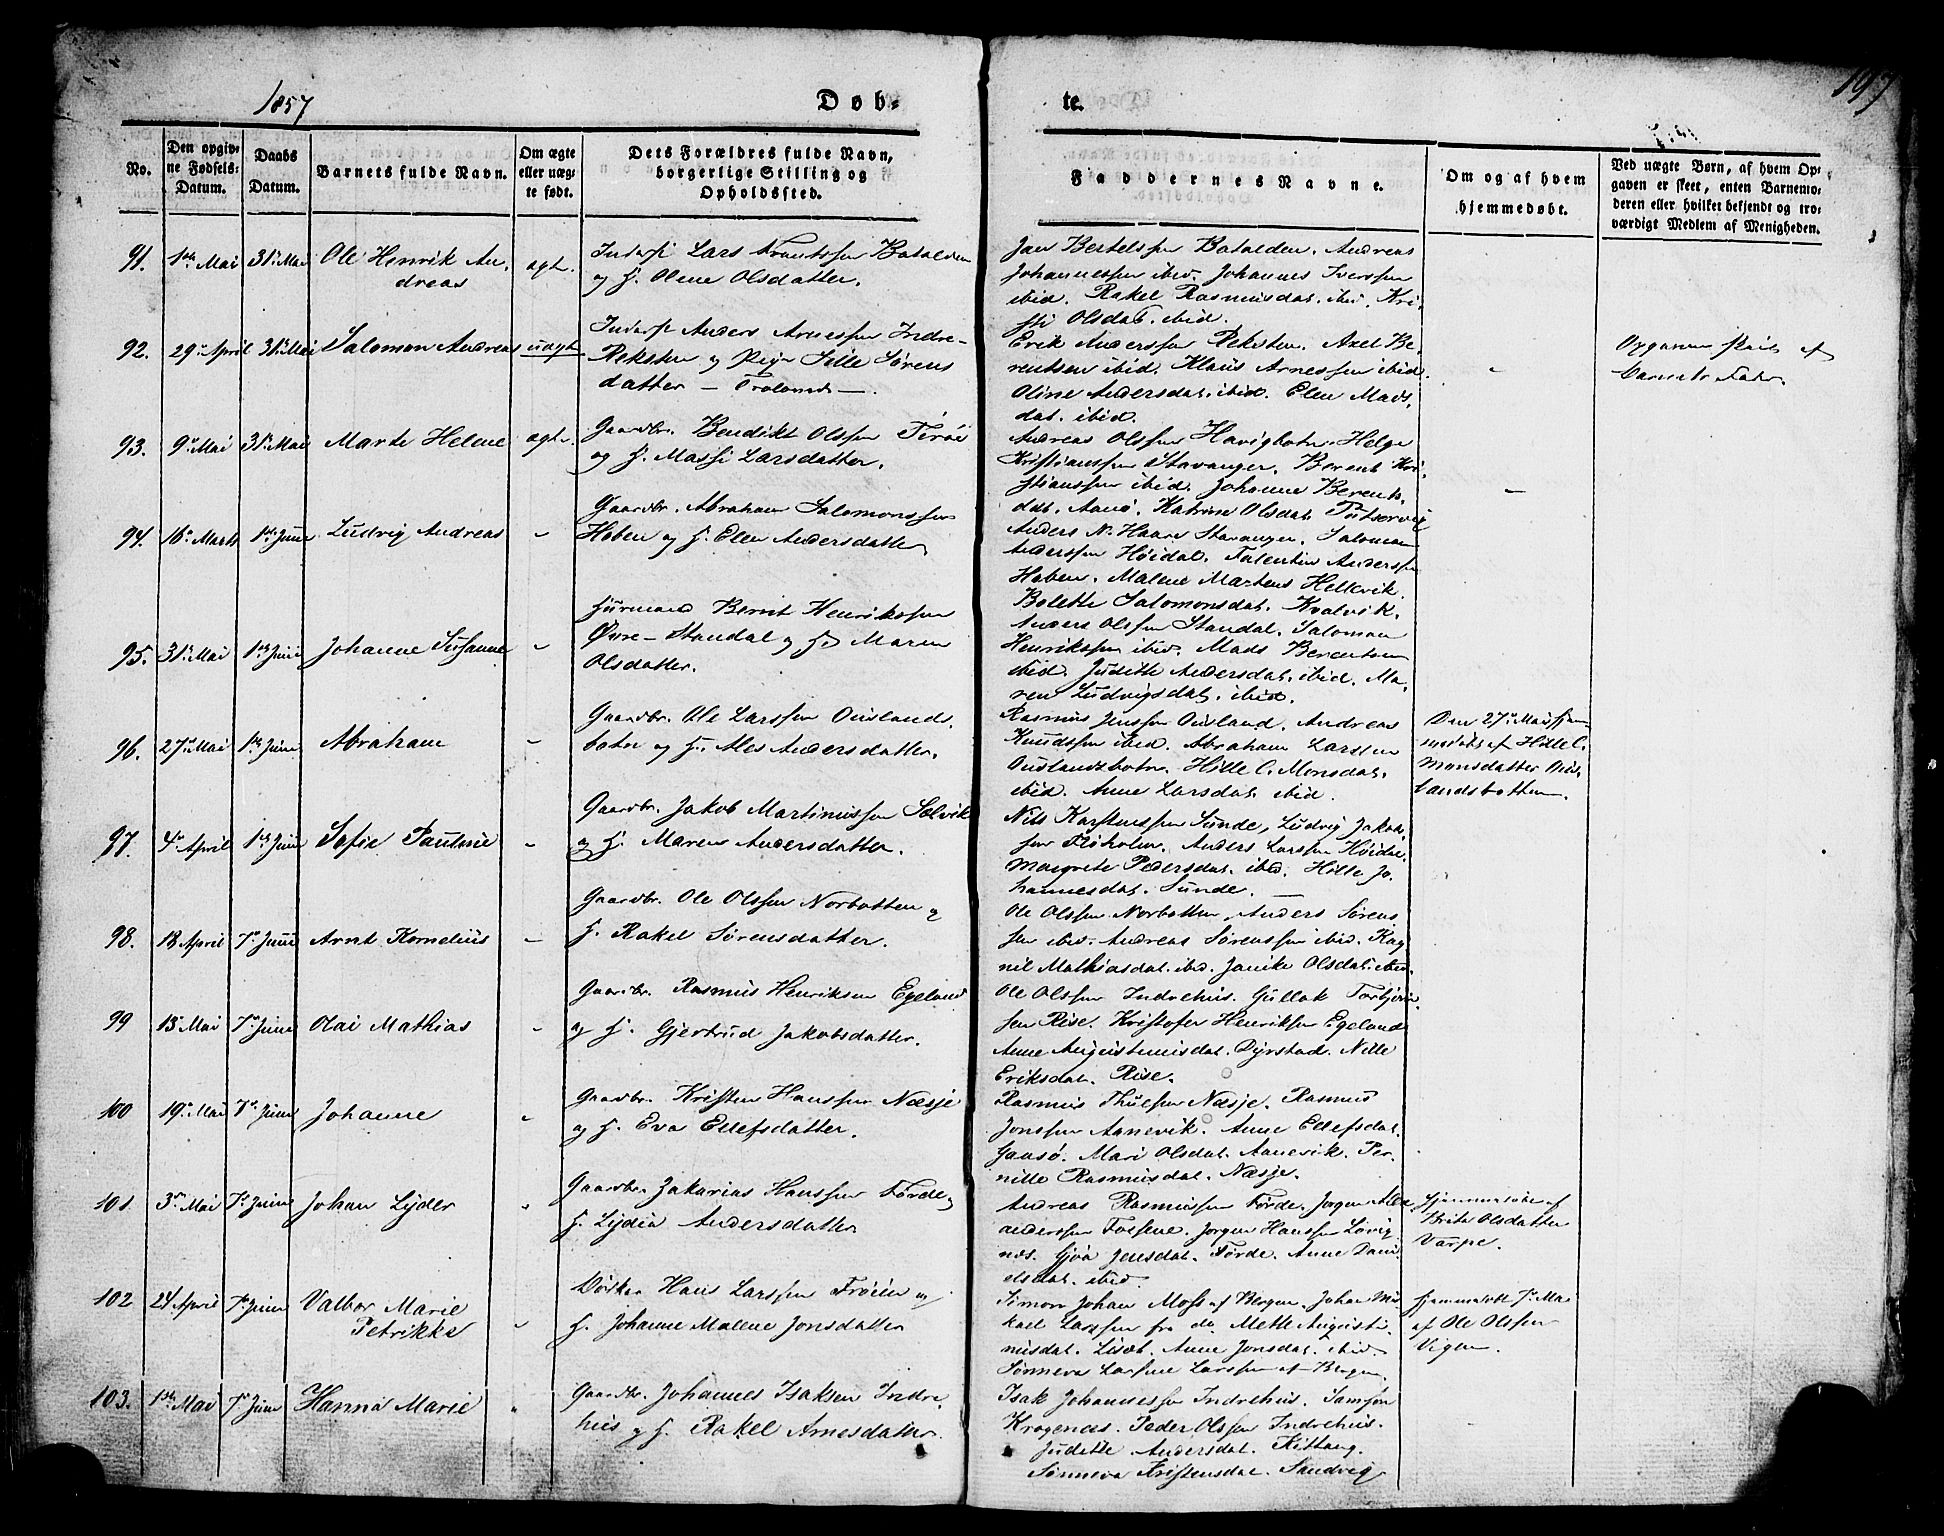 1857
Døb-
te.
197
No.
Den opgiv-
ne Fødsels-
Datum.
Daabs
Datum.
Barnets fulde Navn.
Om ægte
eller uæg-
te født.
Dets Forældres fulde Navn,
borgerlige Stilling og
Opholdssted.
Faddernes Navne.
Om og af hvem
hjemmedøbt.
Ved uægte Børn, af hvem Op-
gaven er skeet, enten Barnemo-
deren eller hvilket bekjendt og tro-
værdigt Medlem af Menigheden.
91. 1ste Mai 31te Mai Ole Henrik An-
dreas
ægte.
Inderst Lars Frantssen Batalden
og H. Olene Olsdatter.
Jan Bertelssen Batalden. Andreas
Johannessen ibid. Johannes Iverssen
ibid. Rakel Rasmusdat. ibid. Kri-
sti Olsdat. ibid.
92. 29de April 31te Mai Salomon Andreas uægte
Inderst Anders Arnessen Indre-
Reksten og Pige Sille Sørens
datter -
Erik Anderssen Reksten. Axel Be-
rentsen ibid. Klaus Arnessen ibid.
Oline Andersdat. ibid. Elen Mads-
dat. ibid.
-
Opgaven skeed af
Barnets Fader.
93. 9de Mai 31te Mai Marte Helene ægte
Gaardbr. Bendikt Olssen Terøe
og H. Massi Larsdatter.
Andreas Olssen Havigbotn. Helge
Kristianssen Stavanger. Berent Kri-
stianssen ibid. Johanne Berents-
dat. Aanø. Katrine Olsdat.
-
94. 16de Marts 1ste Juni Ludvig Andreas -
Gaardbr. Abraham Salomonssen
Hoben og H. Elen Andersdatter
Anders N. Haare Stavanger. Salomon
Anderssen Høidal. Falentin Anderssen
Hoben. Malene Martens Hellevik.
Bolette Salomonsdat. Kvalvik.
95. 31te Mai 1ste Juni Johanne Susanne -
Huusmand Bernt Henrikssen
Øvre-Standal og H. Maren
Olsdatter.
Anders Olssen Standal. Salomon
Henrikssen ibid. Mads Berentsen
ibid. Judithe Andersdat. ibid. Ma-
ren Ludvigsdat. ibid.
96. 27de Mai 1ste Juni Abraham -
Gaardbr. Ole Larssen Ouslands-
botn og H. Ales Andersdatter.
Rasmus Jenssen Ousland. Andreas
Knudssen ibid. Abraham Larssen
Ouslandsbotn. Hille C. Monsdat.
ibid. Anne Larsdat. ibid.
Den 27de Mai hjem-
medøbt af Hille C.
Monsdatter Ous-
landsbotten.
97. 4de April 1ste Juni Sofie Pauline -
Gaardbr. Jakob Martinussen Sælvik
og H. Maren Andersdatter.
Nils Karstenssen Sunde, Ludvig Jakob-
sen Fløholm. Anders Larssen Høidal.
Margrete Pedersdat. ibid. Hille Jo-
hannesdat. Sunde.
98. 18 April 7de Juni Arnt Kornelius -
Gaardbr. Ole Olssen Norbotten og
H. Rakel Sørensdatter.
Ole Olssen Norbotten, Anders Sørens
sen ibid. Andreas Sørenssen ibid. Rag
nil Mathiasdat. ibid. Janike Olsdat. ibid.
99 13de Mai 7de Juni Olai Mathias -
Gaardbr. Rasmus Henriksen Egeland
og H. Gjertrud Jakobsdatter.
Ole Olssen Indrehus. Gullak Torbjørn-
sen Rise. Kristofer Henriksen Egeland
Anne Augustinusdat. Dyrstad. Nille
Eriksdat. Rise.
100 19de Mai 7de Juni Johanne "
Gaardbr. Kristen Hanssen Næsje
og H. Eva Ellefsdatter.
Rasmus Thuesen Næsje. Rasmus
Jonssen Aanevik. Anne Ellefsdat.
Gaasø. Mari Olsdat. Aanevik. Per-
nille Rasmusdat. Næsje.
101 3die Mai 7de Juni Johan Lyder "
Gaardbr. Zakarias Hanssen Førde og
H. Lydia Andersdatter
Andreas Rasmussen Førde. Jørgen Alex
anderssen Fossene. Jørgen Hanssen Løvig
nes. Gjøa Jensdat. Førde. Anne Dani
elsdat. ibid.
Hjemmedøbt af
Brita Olsdatter
Varpe.
102 24 April 7de Juni Valbor Marie
Petrikke
"
Hans Larssen Frøien og
H. Johanne Malene Jonsdatter
Simon Johan Moss af Bergen. Johan Mi-
kael Larssen fra do. Mette Augusti-
nusdat. Liset. Anne Jonsdat. ibid
Sønneva Larsine Larssen af Bergen.
Hjemmedøbt 7de Mai
af Ole Olssen
Vigen.
103. 1ste Mai 7de Juni Hanna Marie "
Gaardbr. Johannes Isaksen Indre-
hus og H. Rakel Arnesdatter.
Isak Johannessen Indrehus. Samson
Krogenæs. Peder Olssen Indrehus.
Judithe Andersdat. Kittang.
Sønneva Kristensdat. Sandvig